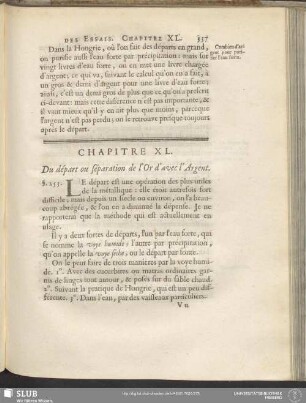 DES ESSAIS. CHAPITRE XL. 337
Dans la Hongrie, où l'on fait des départs en grand,
on purifie aussi l'eau forte par précipitation: mais sur
vingt livres d'eau forte, on en met une livre chargée
d'argent; ce qui va, suivant le calcul qu'on en a fait, à
un gros & demi d'argent pour une livre d'eau forte:
ainsi, c'est un demi gros de plus que ce qu'on a prescrit
ci-devant: mais cette différence n'est pas importante, &
il vaut mieux qu'il y en ait plus que moins, parceque
l'argent n'est pas perdu; on le retrouve presque toujours
après le départ.
Combien d'ar-
gent pour puri-
fier l'eau forte.
CHAPITRE XL.
Du départ ou séparation de l'Or d'avec l'Argent.
LE départ est une opération des plus utiles
de la métallique: elle étoit autrefois fort
difficile; mais depuis un siecle ou environ, on l'a beau-
coup abrégée, & l'on en a diminué la dépense. Je ne
rapporterai que la méthode qui est actuellement en
usage.
Il y a deux sortes de départs, l'un par l'eau forte, qui
se nomme la voye humide: l'autre par précipitation,
qu'on appelle la voye séche, ou le départ par fonte.
On le peut faire de trois manieres par la voye humi-
de. 1°. Avec des cucurbites ou matras ordinaires gar-
nis de leages tout autour, & posés sur du sable chaud.
2°. Suivant la pratique de Hongrie, qui est un peu dif-
férente. 3°. Dans l'eau, par des vaisseaux particuliers.
V u
SLUB
Wir führen Wissen.